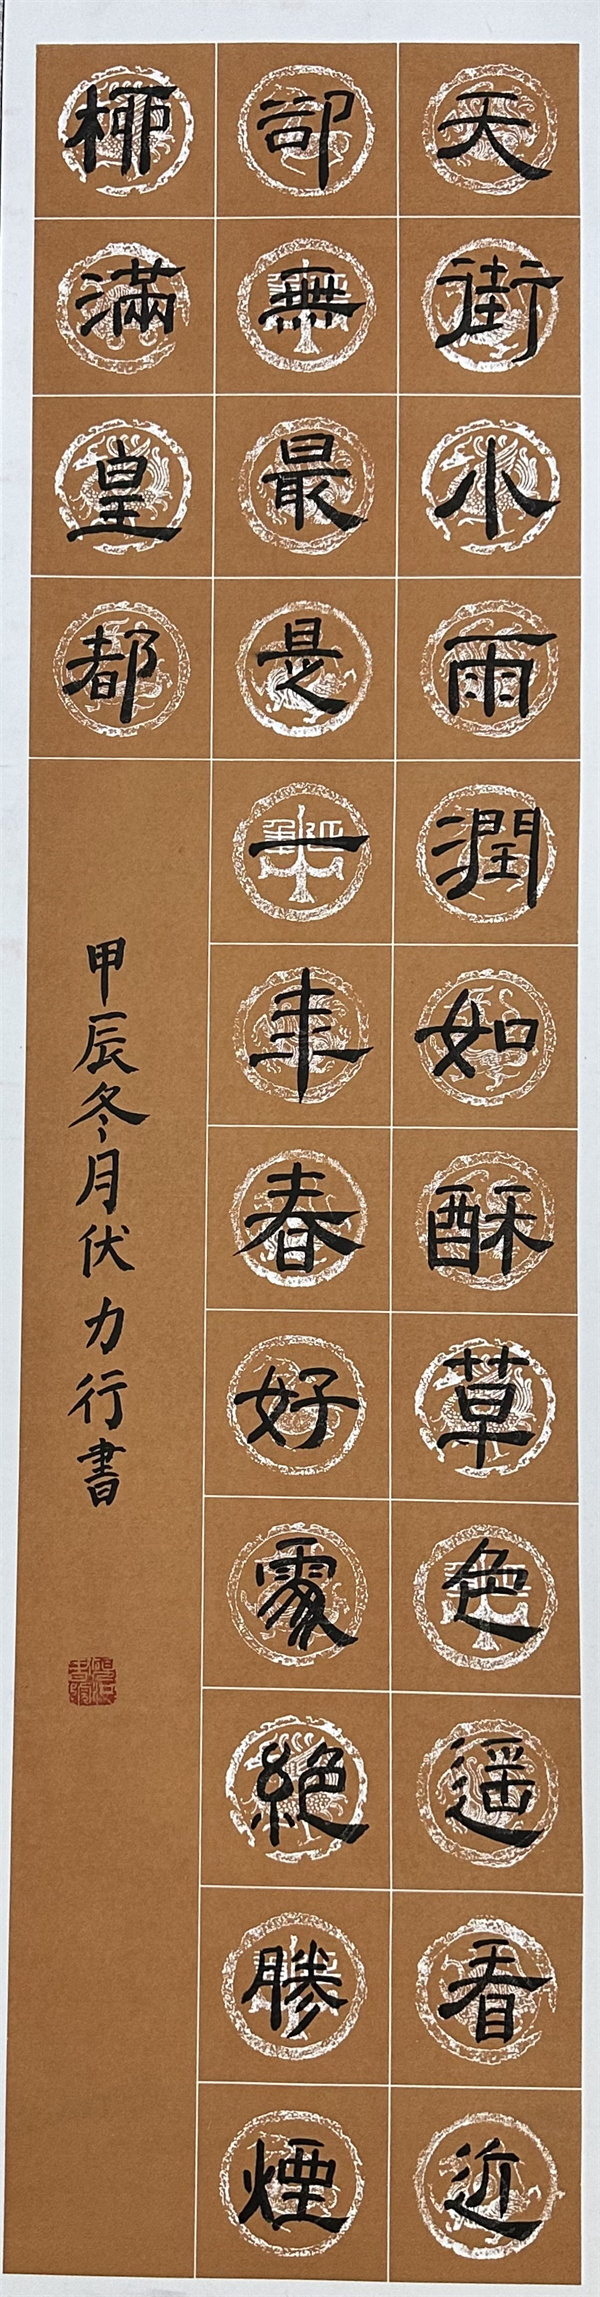 天街小雨潤如酥草色遙看近
卻無最是一年春好處絕勝煙
柳滿皇都
甲辰冬月伏力行書